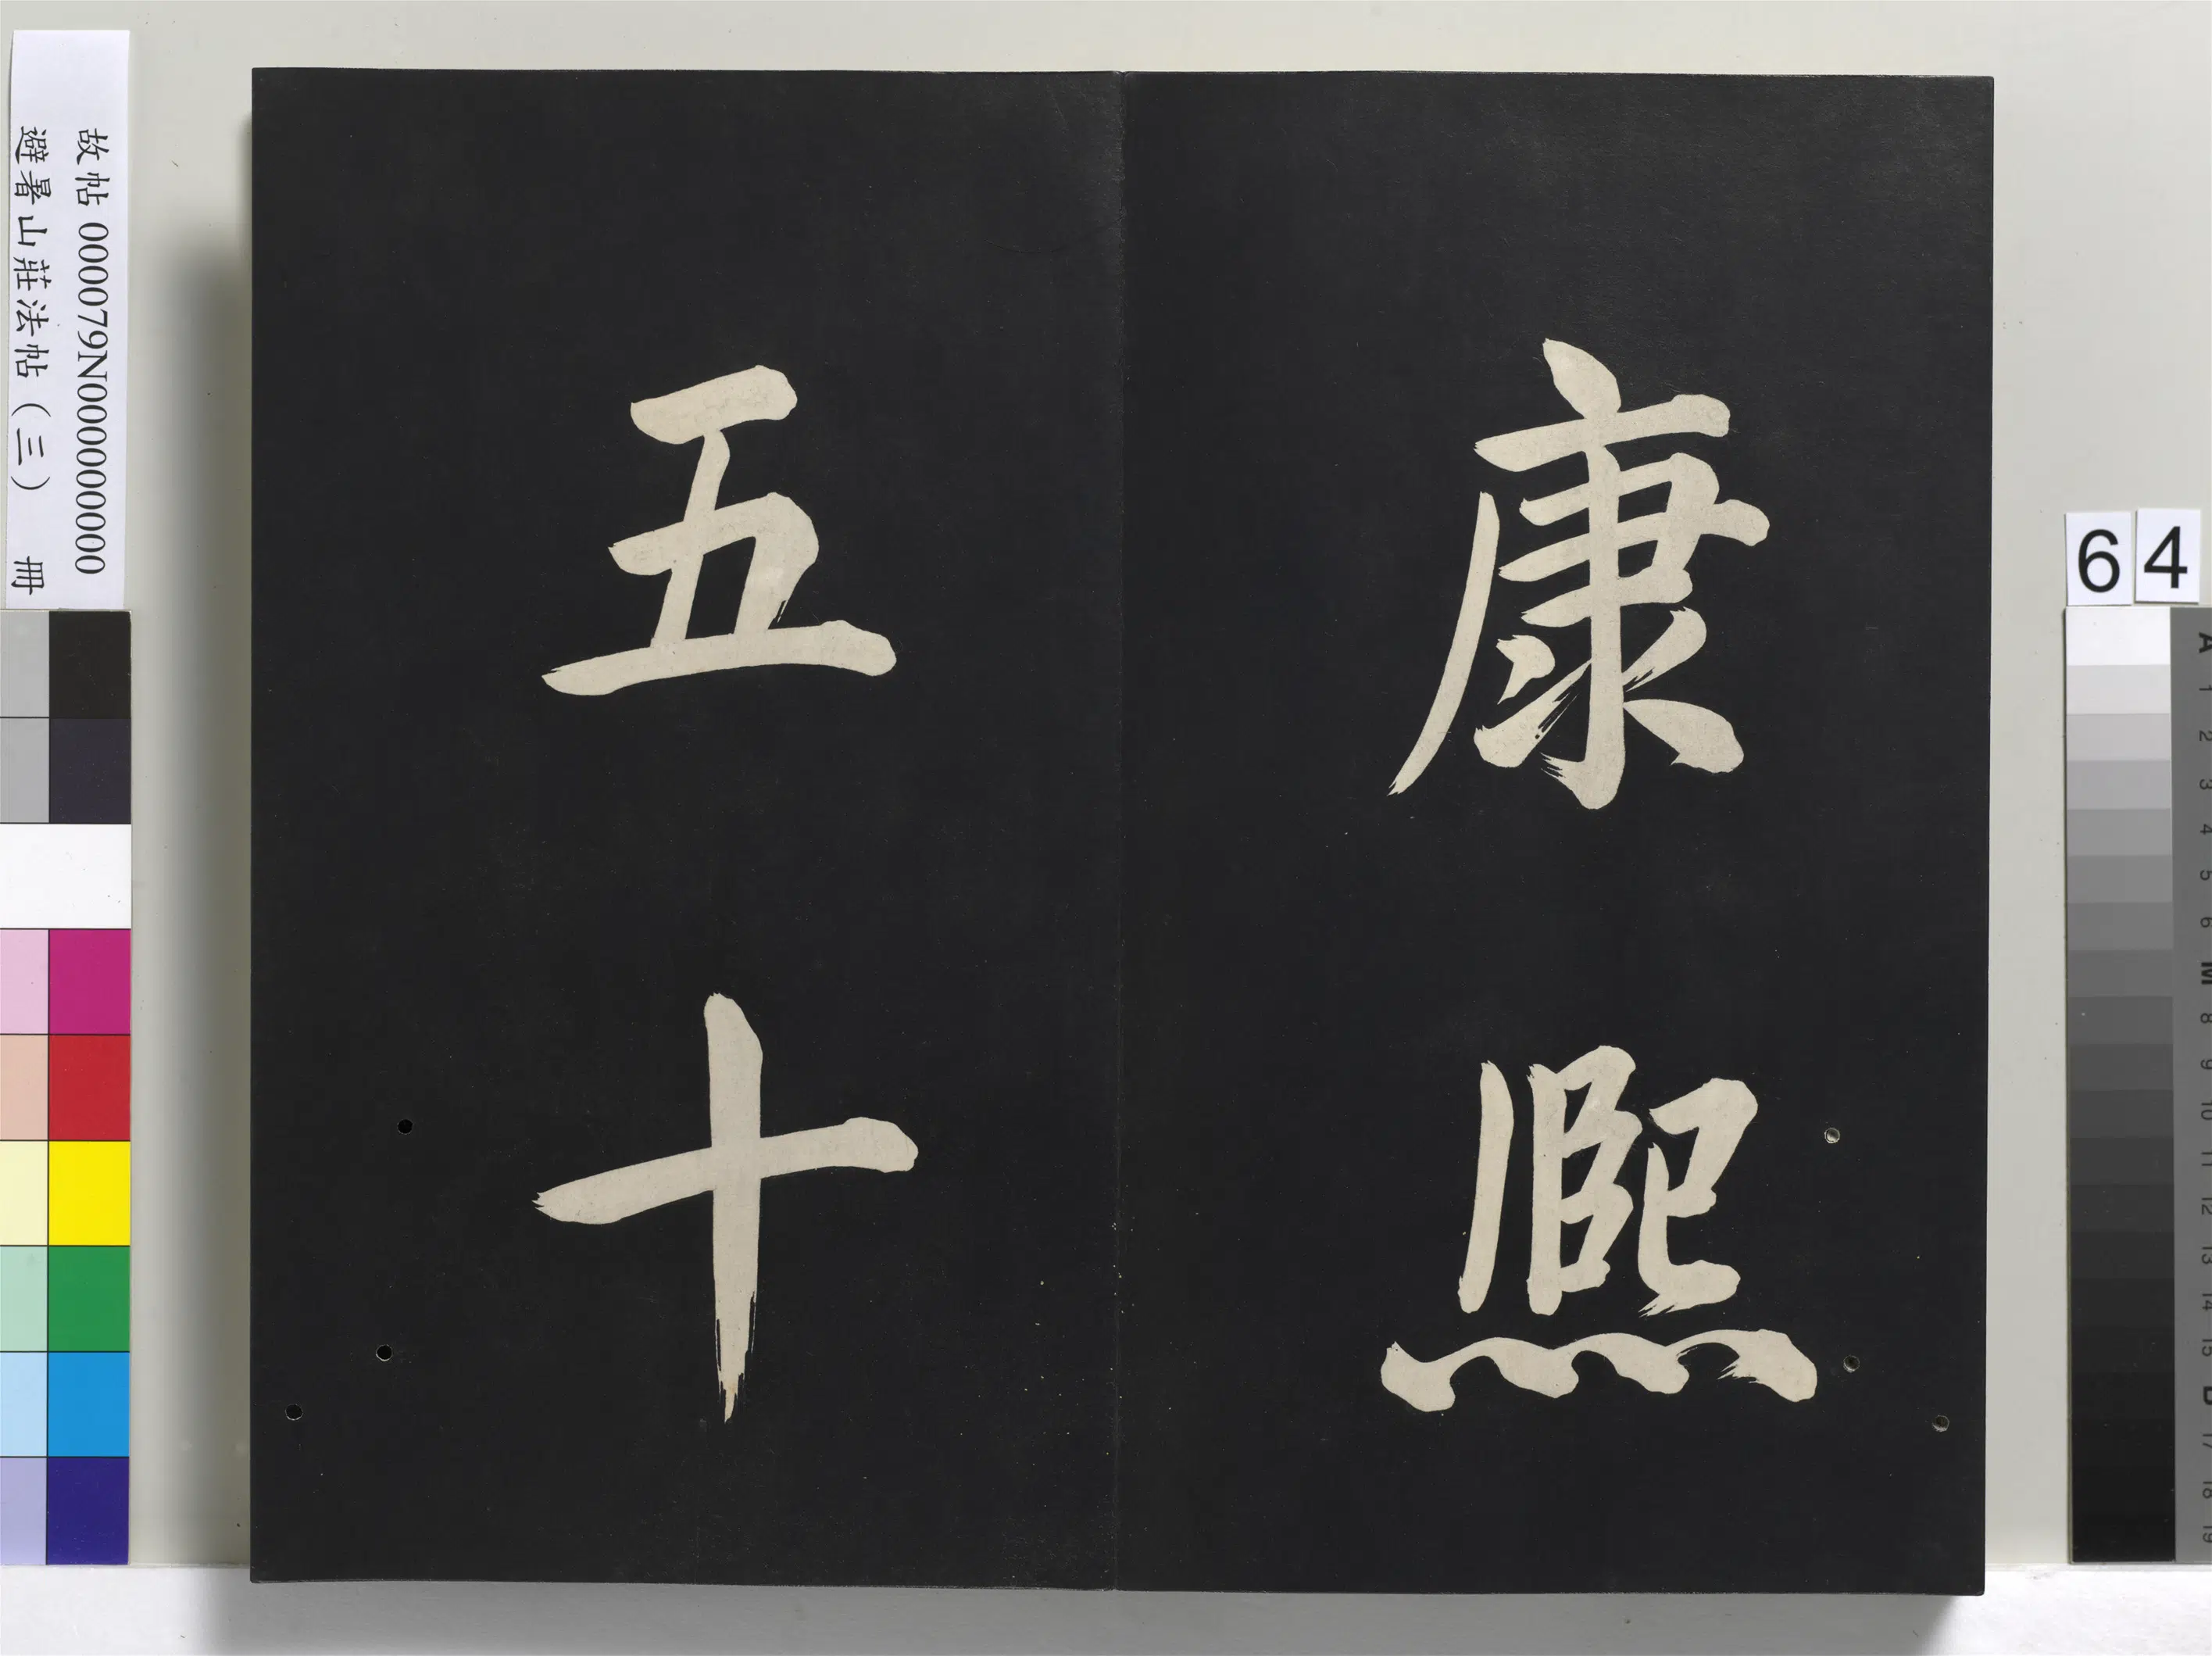 康熙
五十
故帖 000079N000000000
避暑山莊法帖（三） 冊
64
A
1
2
3
4
5
6
M
8
9
10
11
12
13
14
15
B
17
18
19